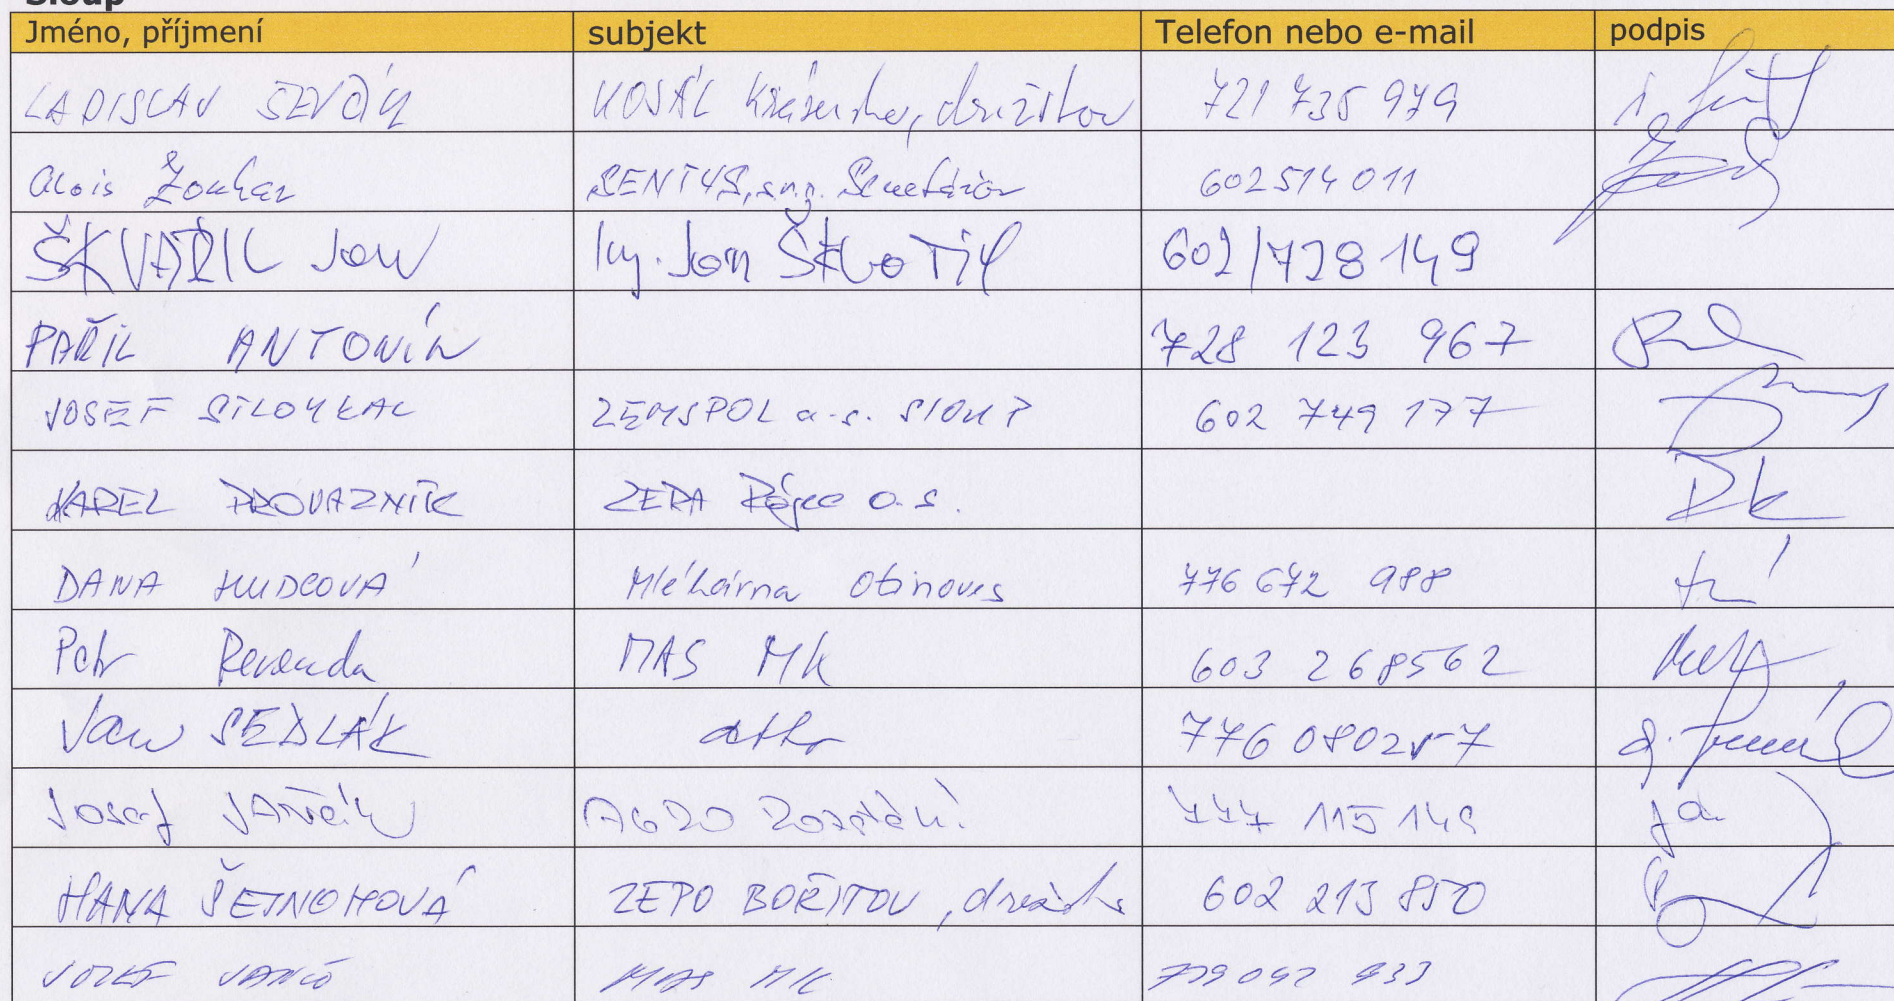 Sloup
Jméno, příjmení subjekt Telefon nebo e-mail podpis
LADISLAV ŠEVČÍK 721 735 979
Alois Zouhar SENTUS, 602514 011
ŠKVAŘIL Jan Ing. Jan 602/728 149
PAŘIL ANTONÍN 728 123 967
JOSEF ZEMSPOL a.s. SLOUP 602 749 177
KAREL PROVAZNÍK ZERA Rájec a.s.
DANA HUDCOVÁ Mlékárna Otinoves 776 672 988
Petr Revenda MAS MK 603 268562
Jan SEDLÁK 776 080257
Josef AGRO Rozstání 777 115 149
HANA ŠEJNOHOVÁ ZEPO BOŘITOV, družstvo 602 213 850
JOZEF JANČO MAS MK 739 042 933